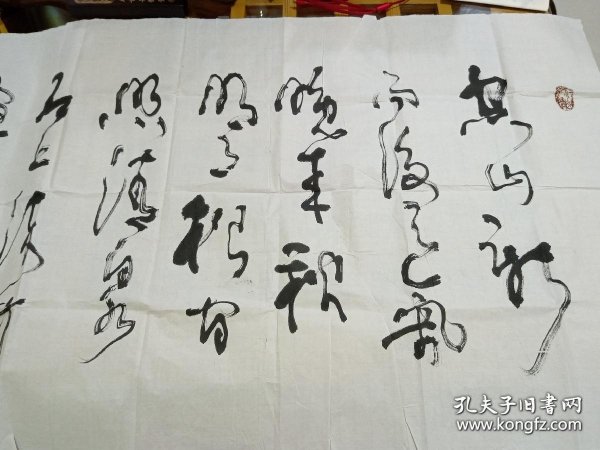 空山新
雨後天氣
晚来秋
明月松间
照清泉
石上流
孔夫子旧书网
www.kongfz.com